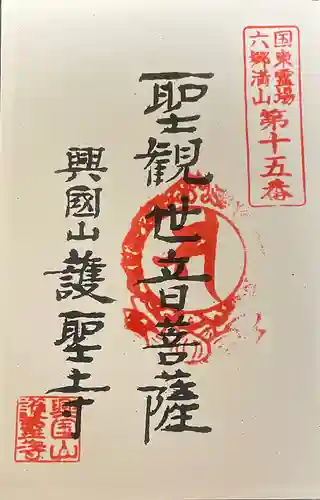 国東霊場
六郷満山
第十五番
聖観世音菩薩
興國山護聖寺
興国山
護聖寺